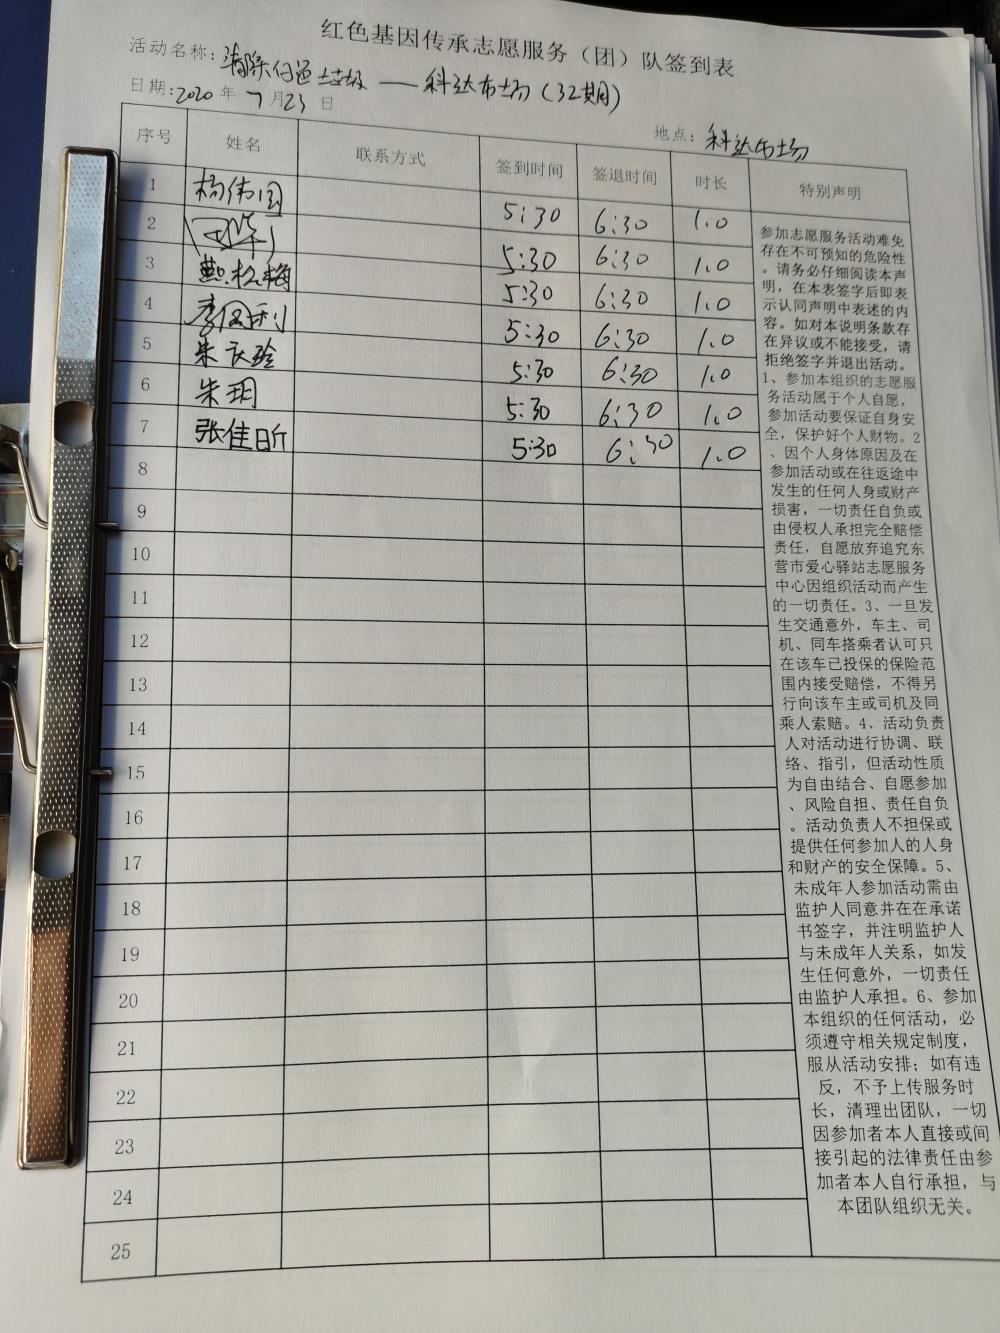 红色基因传承志愿服务（团）队签到表
活动名称：清除白色垃圾——科达市场（32期）
日期：2020年7月23日 地点：科达市场
序号 姓名 联系方式 签到时间 签退时间 时长 特别声明
1 杨伟国 5:30 6:30 1.0
2 5:30 6:30 1.0
3 5:30 6:30 1.0
4 5:30 6:30 1.0
5 5:30 6:30 1.0
6 朱玥 5:30 6:30 1.0
7 张佳昕 5:30 6:30 1.0
8
9
10
11
12
13
14
15
16
17
18
19
20
21
22
23
24
25
参加志愿服务活动难免
存在不可预知的危险性
。请务必仔细阅读本声
明，在本表签字后即表
示认同声明中表述的内
容。如对本说明条款存
在异议或不能接受，请
拒绝签字并退出活动。
1、参加本组织的志愿服
务活动属于个人自愿，
参加活动要保证自身安
全，保护好个人财物。2
、因个人身体原因及在
参加活动或在往返途中
发生的任何人身或财产
损害，一切责任自负或
由侵权人承担完全赔偿
责任，自愿放弃追究东
营市爱心驿站志愿服务
中心因组织活动而产生
的一切责任。3、一旦发
生交通意外，车主、司
机、同车搭乘者认可只
在该车已投保的保险范
围内接受赔偿，不得另
行向该车主或司机及同
乘人索赔。4、活动负责
人对活动进行协调、联
络、指引，但活动性质
为自由结合、自愿参加
、风险自担、责任自负
。活动负责人不担保或
提供任何参加人的人身
和财产的安全保障。5、
未成年人参加活动需由
监护人同意并在在承诺
书签字，并注明监护人
与未成年人关系，如发
生任何意外，一切责任
由监护人承担。6、参加
本组织的任何活动，必
须遵守相关规定制度，
服从活动安排；如有违
反，不予上传服务时
长，清理出团队，一切
因参加者本人直接或间
接引起的法律责任由参
加者本人自行承担，与
本团队组织无关。